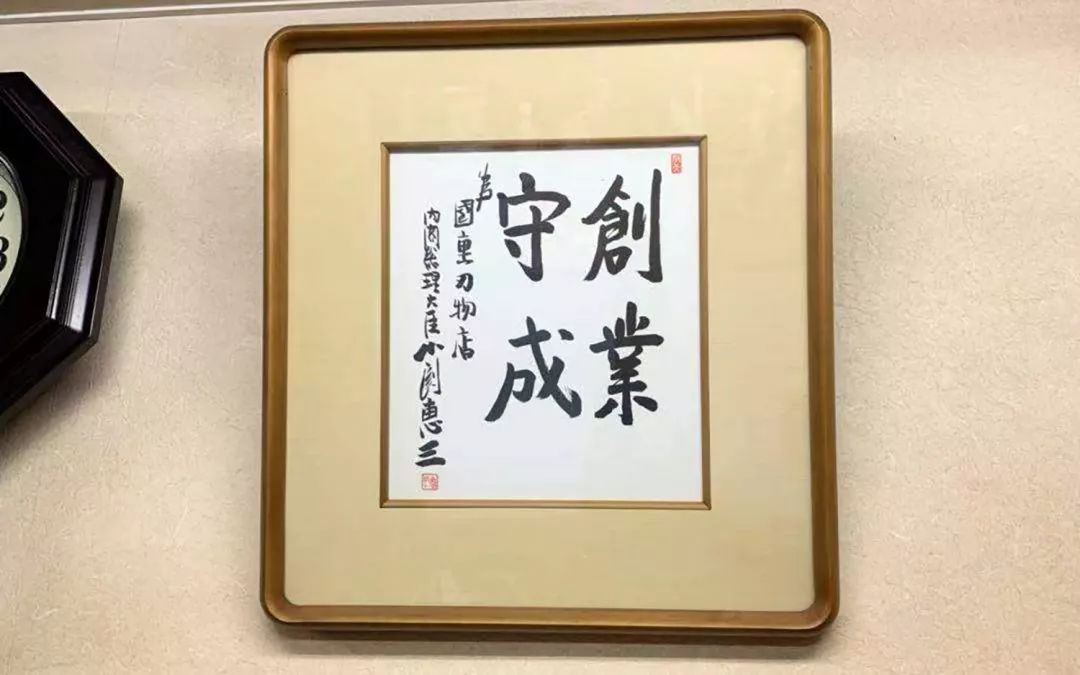 創業
守成
為 國重刃物店
内閣総理大臣 小渕恵三